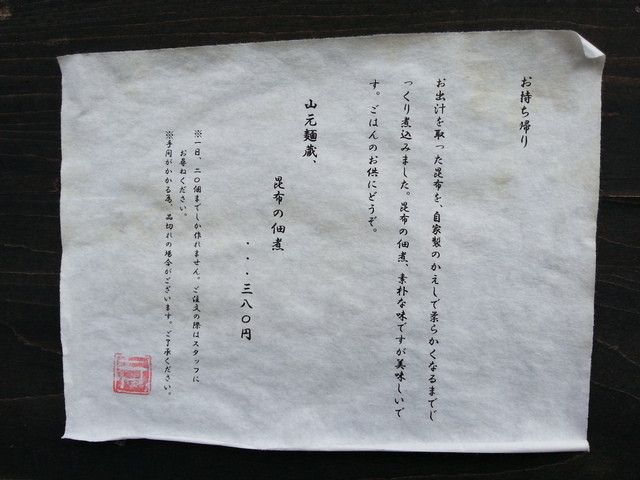 お持ち帰り
お出汁を取った昆布を、自家製のかえしで柔らかくなるまでじ
っくり煮込みました。昆布の佃煮、素朴な味ですが美味しいで
す。ごはんのお供にどうぞ。
山元麺蔵、
昆布の佃煮
・・・三八〇円
※一日、二〇個までしか作れません。ご注文の際はスタッフに
お尋ねください。
※手間がかかる為、品切れの場合がございます。ご了承ください。